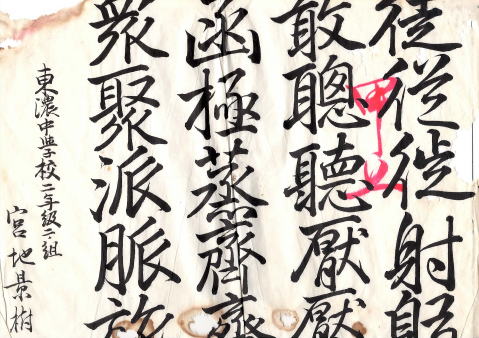 徒従徙射
敢聰聽厭厭
函極蒸齊
衆聚派脈旅
東濃中学校二年級二組
宮地景樹
甲上